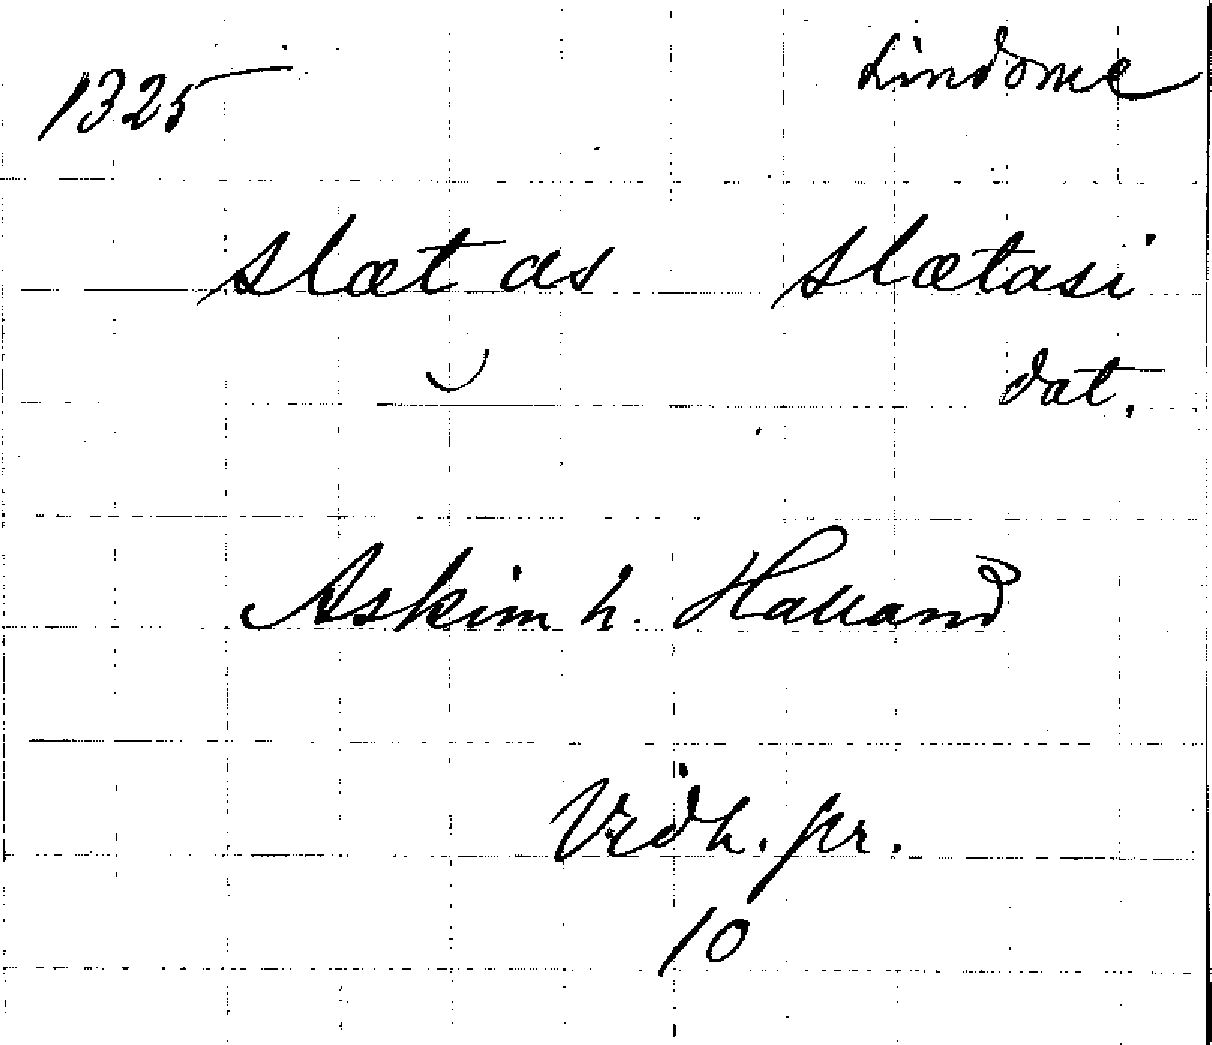 1325 Lindome
slæt as slætasi
dat.
Askim h. Halland
h. pr.
10